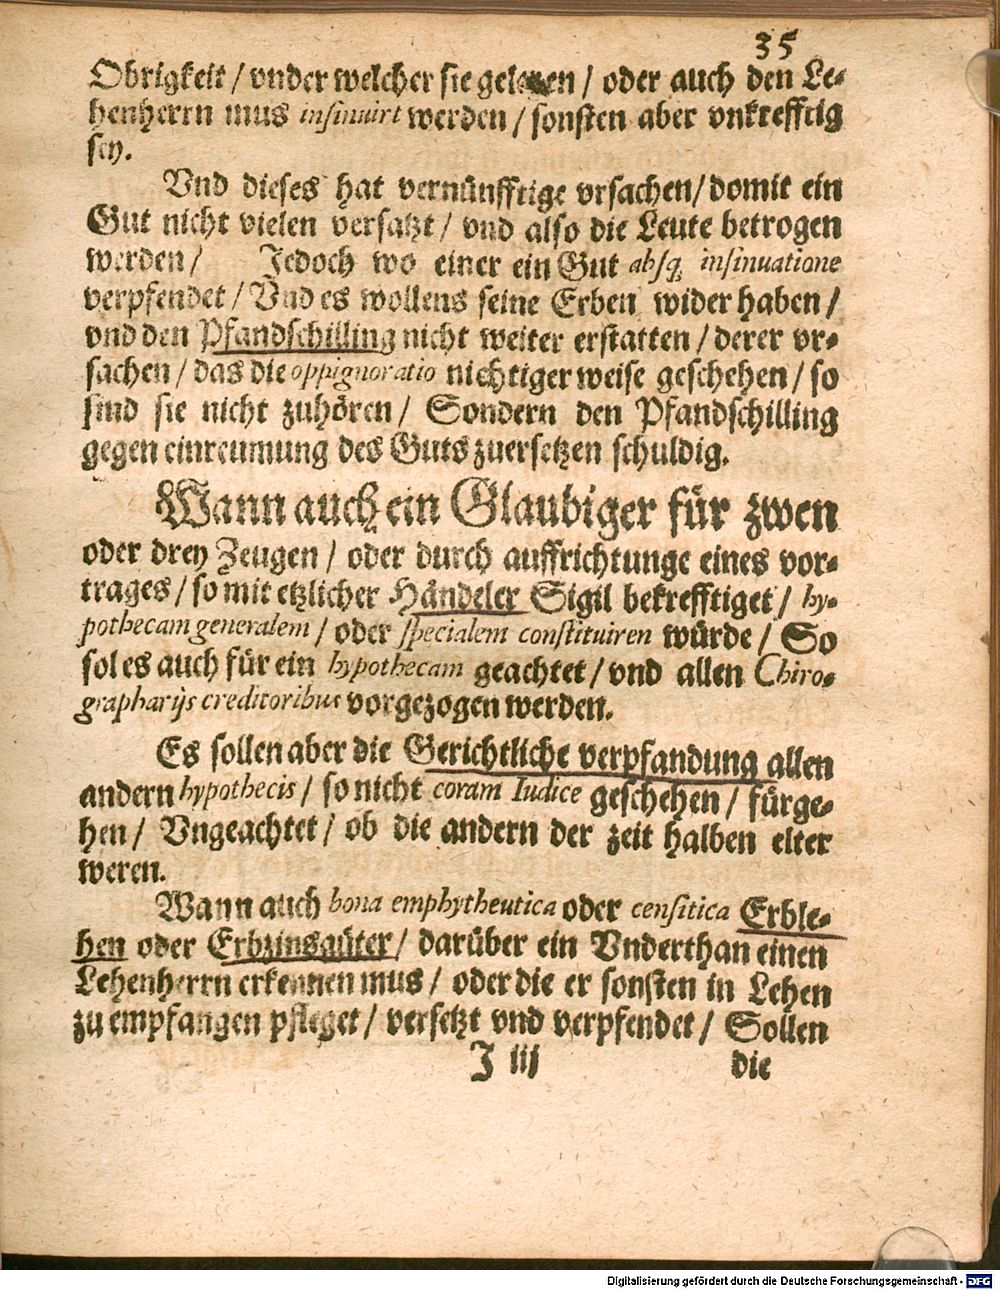 35
Obrigkeit / vnder welcher sie gelegen / oder auch den Le-
henherrn mus insinuirt werden / sonsten aber vnkrefftig
sey.
Vnd dieses hat vernünfftige vrsachen / domit ein
Gut nicht vielen versatzt / vnd also die Leute betrogen
werden / Jedoch wo einer ein Gut absq; insinuatione
verpfendet / Vnd es wollens seine Erben wider haben /
vnd den Pfandschilling nicht weiter erstatten / derer vr-
sachen / das die oppignoratio nichtiger weise geschehen / so
sind sie nicht zuhören / Sondern den Pfandschilling
gegen einreumung des Guts zuersetzen schuldig.
Wann auch ein Glaubiger für zwen
oder drey Zeugen / oder durch auffrichtunge eines vor-
trages / so mit etzlicher Händeler Sigil bekrefftiget / hy-
pothecam generalem / oder specialem constituiren würde / So
sol es auch für ein hypothecam geachtet / vnd allen Chiro-
grapharijs creditoribus vorgezogen werden.
Es sollen aber die Gerichtliche verpfandung allen
andern hypothecis / so nicht coram Iudice geschehen / fürge-
hen / Vngeachtet / ob die andern der zeit halben elter
weren.
Wann auch bona emphytheutica oder censitica Erble-
hen oder Erbzinsgüter / darüber ein Vnderthan einen
Lehenherrn erkennen mus / oder die er sonsten in Lehen
zu empfangen pfleget / versetzt vnd verpfendet / Sollen
J iij die
Digitalisierung gefördert durch die Deutsche Forschungsgemeinschaft - DFG